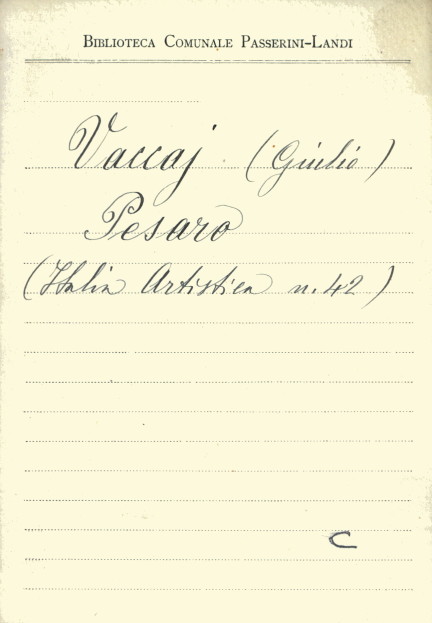 BIBLIOTECA COMUNALE PASSERINI-LANDI
Vaccaj (Giulio)
Pesaro
(Italia Artistica n. 42)
C